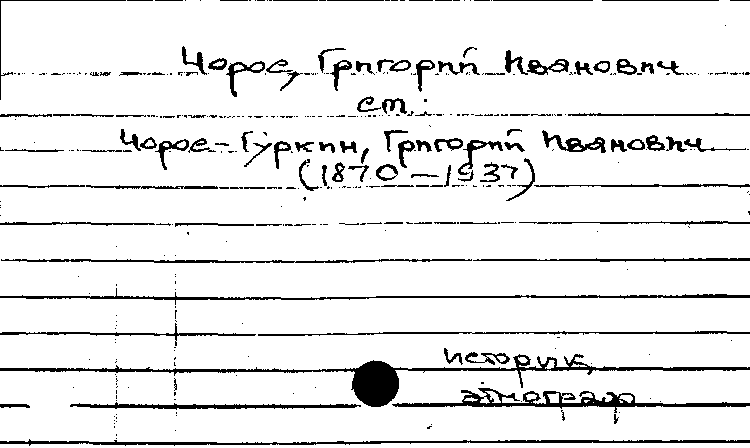 Чорос, Григорий Иванович
см.:
Чорос-Гуркин, Григорий Иванович.
(1870 – 1937)
историк,
этнограф